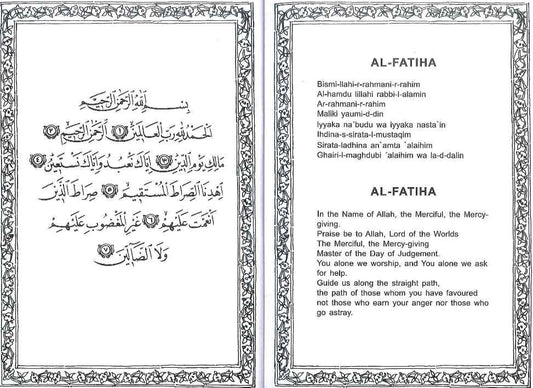 بِسْمِ اللَّهِ الرَّحْمَنِ الرَّحِيمِ
الْحَمْدُ لِلَّهِ رَبِّ الْعَالَمِينَ ١ الرَّحْمَنِ الرَّحِيمِ ٢
مَالِكِ يَوْمِ الدِّينِ ٣ إِيَّاكَ نَعْبُدُ وَإِيَّاكَ نَسْتَعِينُ ٤
اهْدِنَا الصِّرَاطَ الْمُسْتَقِيمَ ٥ صِرَاطَ الَّذِينَ
أَنْعَمْتَ عَلَيْهِمْ ٦ غَيْرِ الْمَغْضُوبِ عَلَيْهِمْ
وَلَا الضَّالِّينَ ٧
AL-FATIHA
Bismi-llahi-r-rahmani-r-rahim
Al-hamdu lillahi rabbi-l-alamin
Ar-rahmani-r-rahim
Maliki yaumi-d-din
Iyyaka na`budu wa iyyaka nasta`in
Ihdina-s-sirata-l-mustaqim
Sirata-ladhina an`amta `alaihim
Ghairi-l-maghdubi `alaihim wa la-d-dalin
AL-FATIHA
In the Name of Allah, the Merciful, the Mercy-
giving.
Praise be to Allah, Lord of the Worlds
The Merciful, the Mercy-giving
Master of the Day of Judgement.
You alone we worship, and You alone we ask
for help.
Guide us along the straight path,
the path of those whom you have favoured
not those who earn your anger nor those who
go astray.